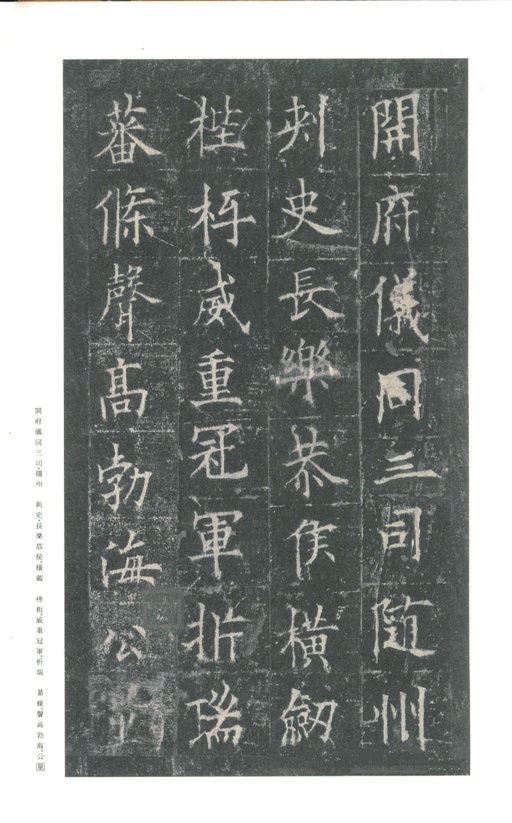 開府儀同三司隨州
刺史長樂恭侯橫劒
桎梏威重冠軍析瑞
蕃條聲高勃海公
開府儀同三司隨州 刺史長樂恭侯橫劒 威重冠軍析瑞 蕃條聲高勃海公